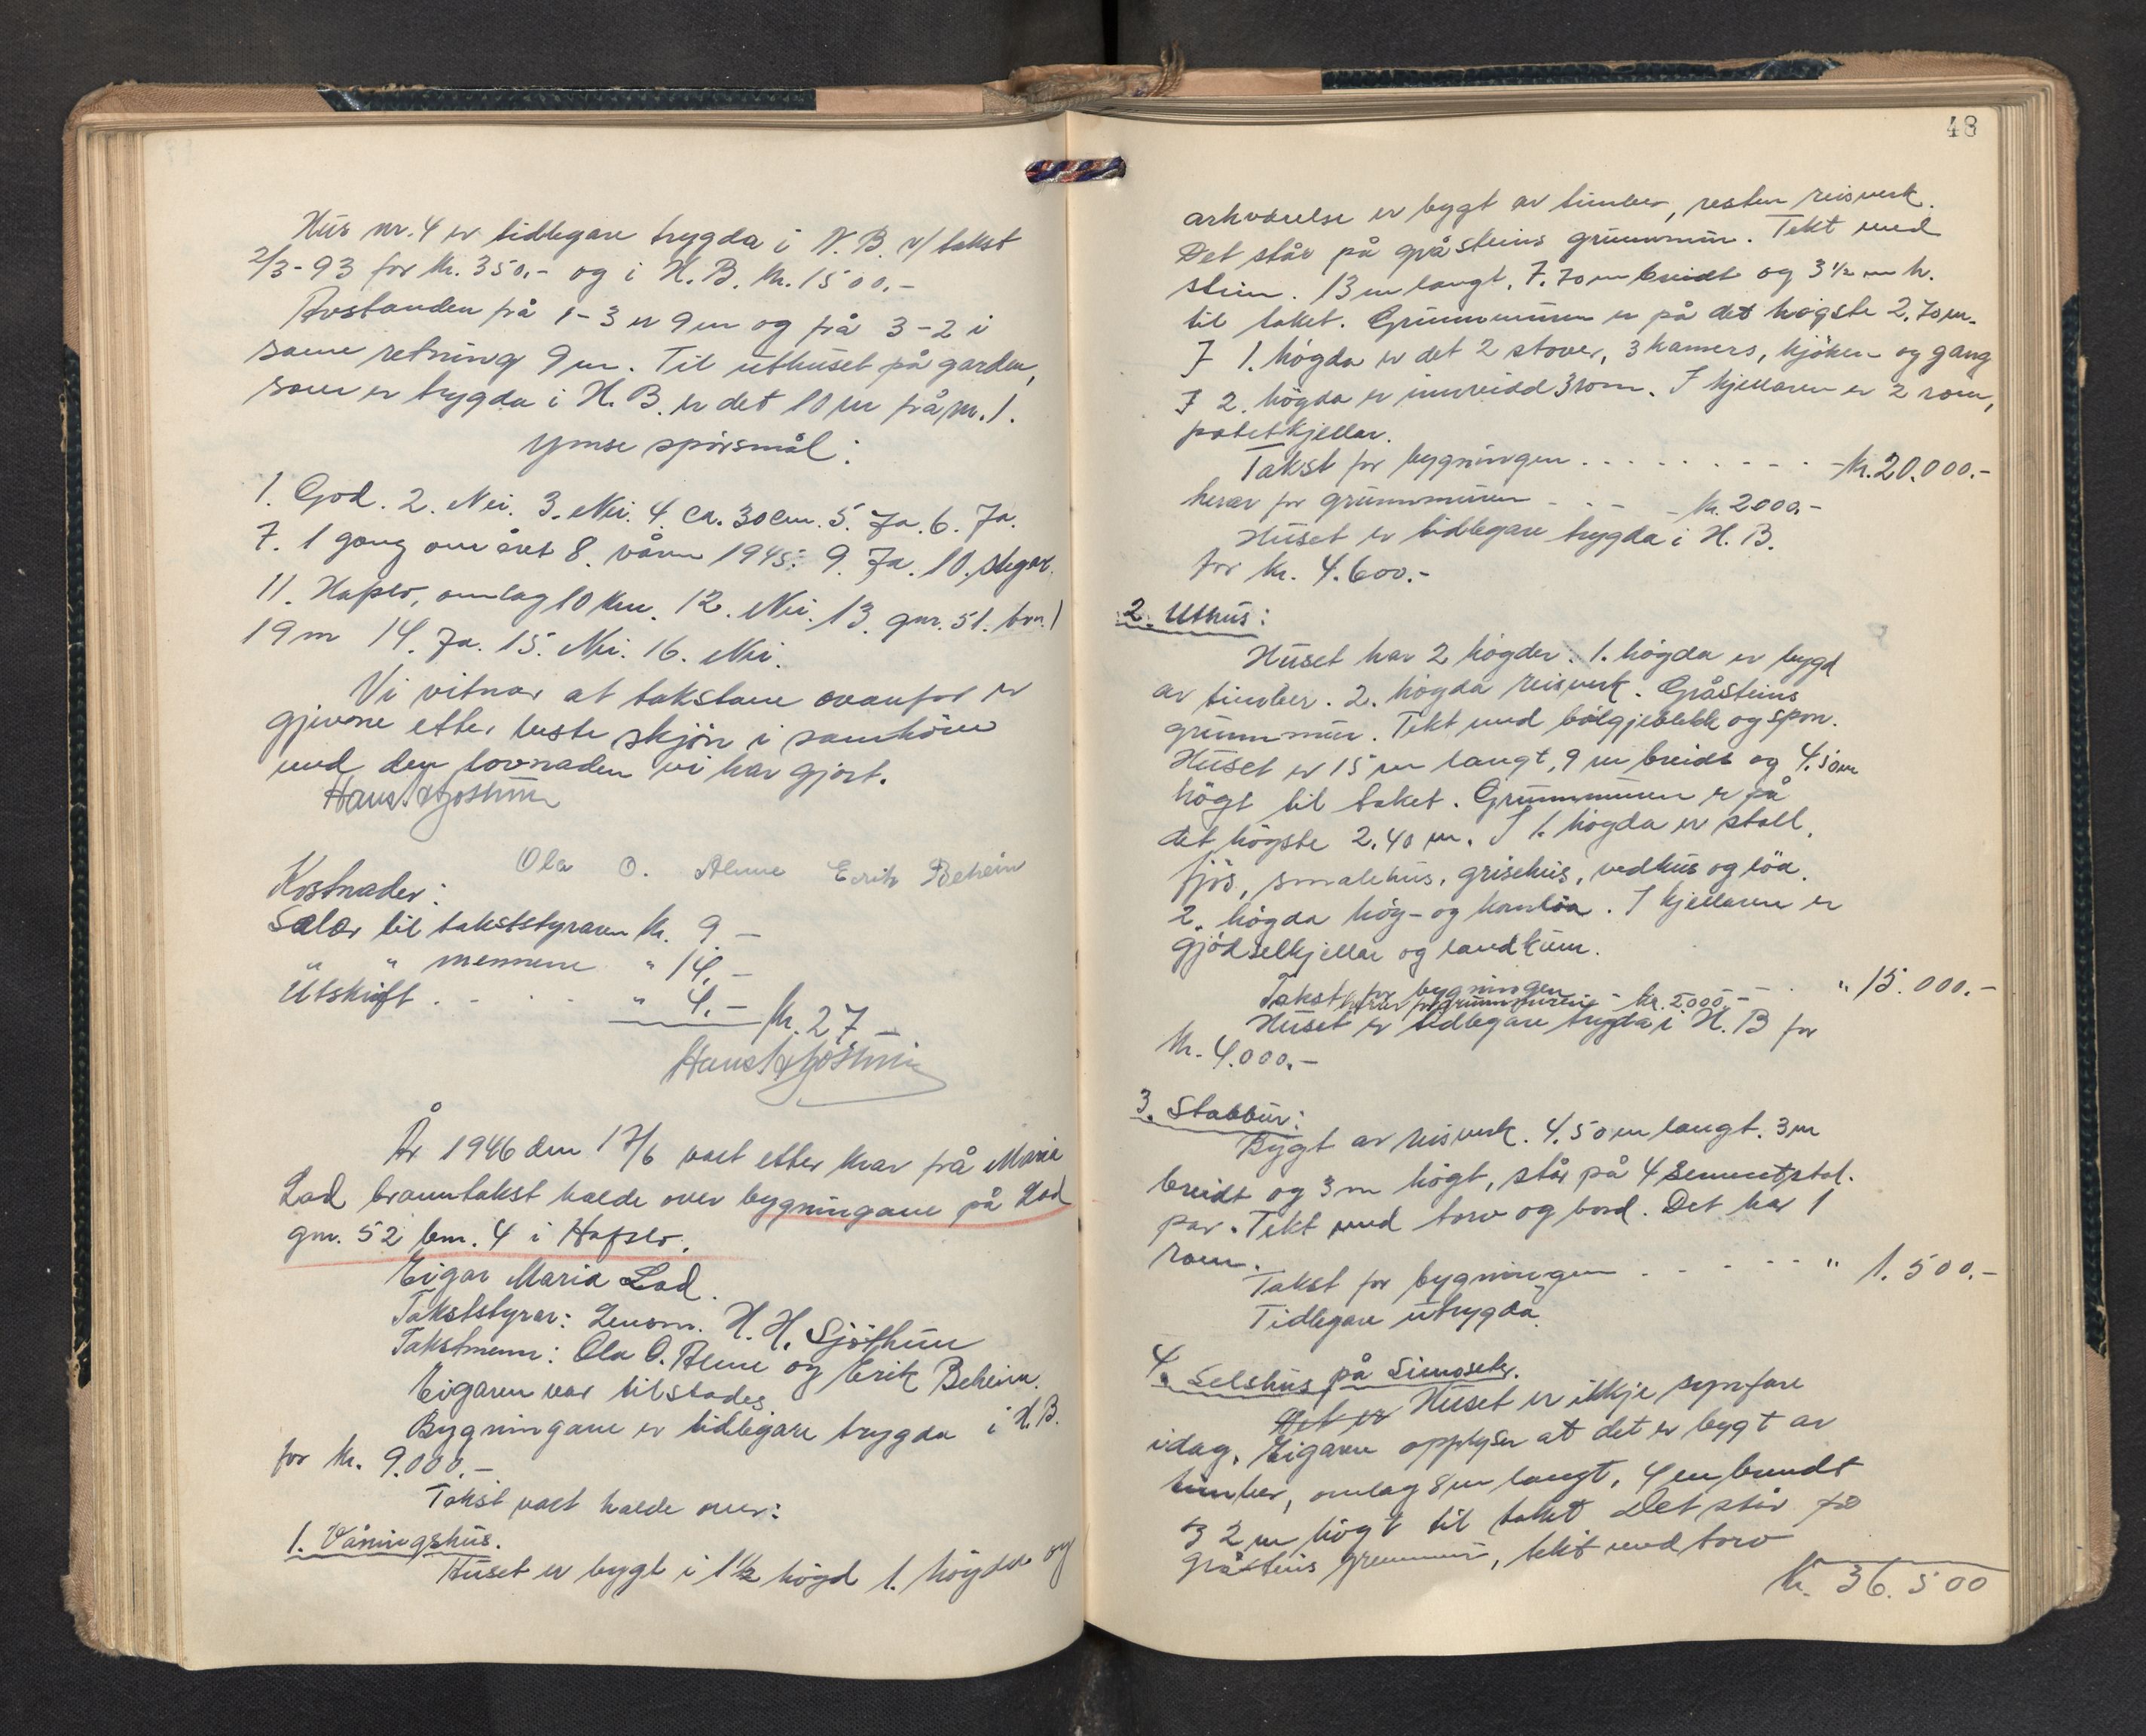 Hus nr. 4 er tidlegare trygda i N. B. v/ takst
2/3-93 for kr. 350.- og i H. B. kr. 1500.-
Avstanden frå 1-3 er 9 m og frå 3-2 i
same retning 9 m. Til uthuset på garden,
som er trygda i H. B. er det 10 m frå nr. 1.
Ymse spörsmål:
1. God. 2. Nei. 3. Nei. 4. ca. 30 cm. 5. Ja. 6. Ja.
7. 1 gong om året 8. våren 1945. 9. Ja. 10. stigar.
11. Hafslo, omlag 10 km. 12. Nei. 13. gnr. 51. bnr. 1
19 m 14. Ja. 15. Nei. 16. Nei.
Vi vitnar at takstane ovanfor er
gjevne etter beste skjön i samhöve
med den lovnaden vi har gjort.
Hans H Sjöthun
Ola O. Alme Erik Beheim
Kostnader:
Salær til takststyraren kr. 9 -
" " mennene " 14.-
Utskrift . - . . - " 4.- kr. 27 -
Hans H Sjöthun
År 1946 den 17/6 vart etter krav frå Maria
Lad branntakst halde over bygningane på Lad
gnr. 52 bnr. 4 i Hafslo.
Eigar Maria Lad.
Takststyrar: Lensm. H. H. Sjöthun
Takstmenn: Ola O. Alme og Erik Beheim.
Eigaren var tilstades
Bygningane er tidlegare trygda i H. B.
for kr. 9.000.-
Takst vart halde over:
1. Våningshus.
Huset er bygt i 1½ högd 1. högda og
48
arkværelse er bygt av timber, resten reisverk.
Det står på gråsteins grunnmur. Tekt med
stein. 13 m langt, 7.70 m breidt og 3 ½ m h.
til taket. Grunnmuren er på det högste 2.70 m.
I 1. högda er det 2 stover, 3 kamers, kjöken og gang
I 2. högda er innreidd 3 rom. I kjellaren er 2 rom,
potetkjellar.
Takst for bygningen . . . . . - - . - kr. 20.000.-
herav for grunnmuren - . - - kr. 2000.-
Huset er tidlegare trygda i H. B.
for kr. 4.600.-
2. Uthus:
Huset har 2 högder. 1. högda er bygd
av timber. 2. högda reisverk. Gråsteins
grunnmur. Tekt med bölgjeblikk og spon.
Huset er 15 m langt, 9 m breidt og 4.50 m
högt til taket. Grunnmuren er på
det högste 2.40 m. I 1. högda er stall,
fjös, smalehus, grisehus, vedhus og löa.
2. högda höy- og kornlöa. I kjellaren er
gjödselkjellar og landkum.
Takst for bygningen - . " 15.000.-
herav for grunnmuren - kr. 2000.-
Huset er tidlegare trygda i H. B for
kr. 4.000.-
3. Stabbur:
Bygt av reisverk. 4.50 m langt. 3 m
breidt og 3 m högt, står på 4 sementstol-
par. Tekt med torv og bord. Det har 1
rom.
Takst for bygningen . - . - - " 1.500.-
Tidlegare utrygda.
4. Selshus på Simoseter.
Det er Huset er ikkje synfare
idag. Eigaren opplyser at det er bygt av
timber, omlag 8 m langt, 4 m breidt
og 2 m högt til taket Det står på
gråsteins grunnmur, tekt med torv
kr. 36.500